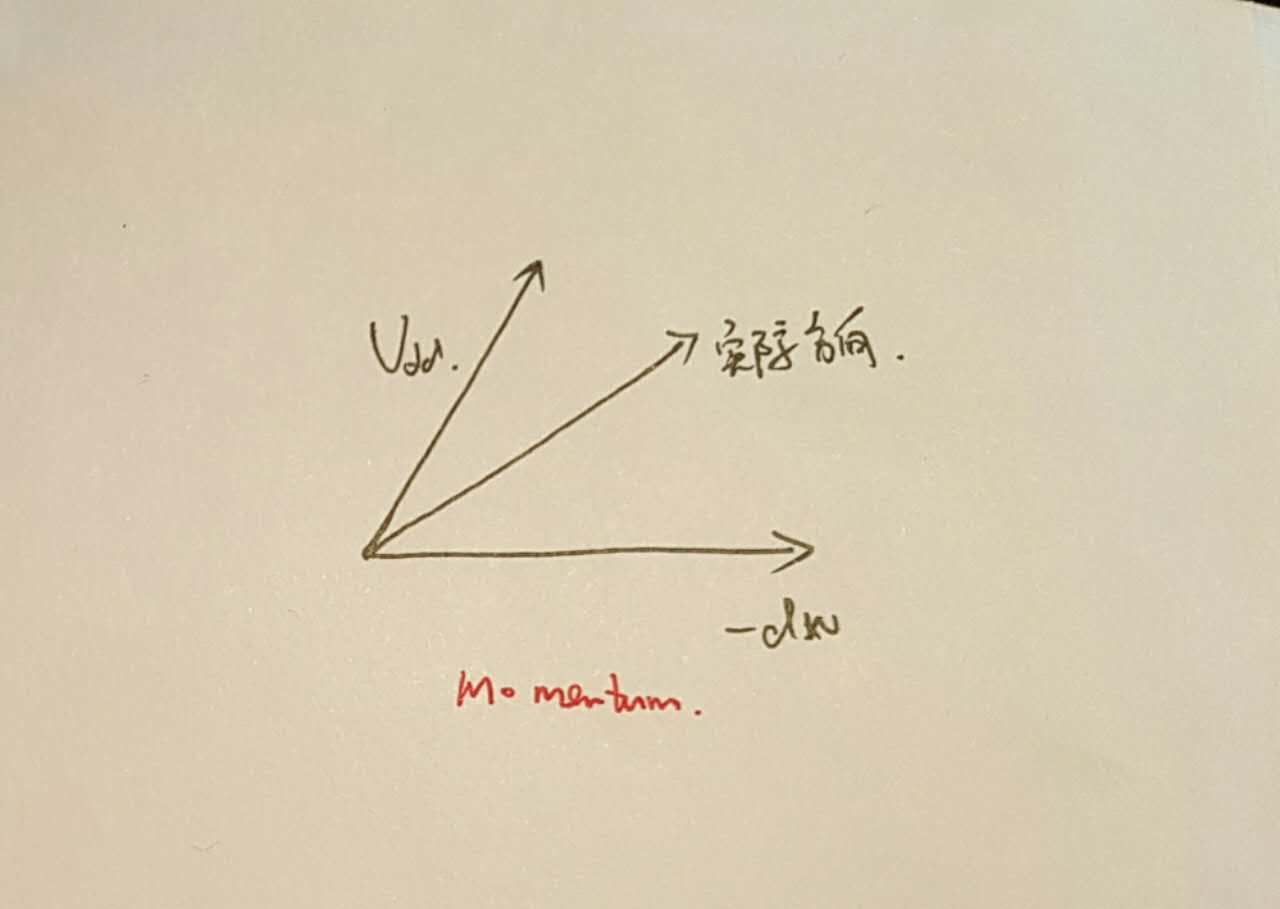 Vdd.
实际方向.
-dw
Momentum.